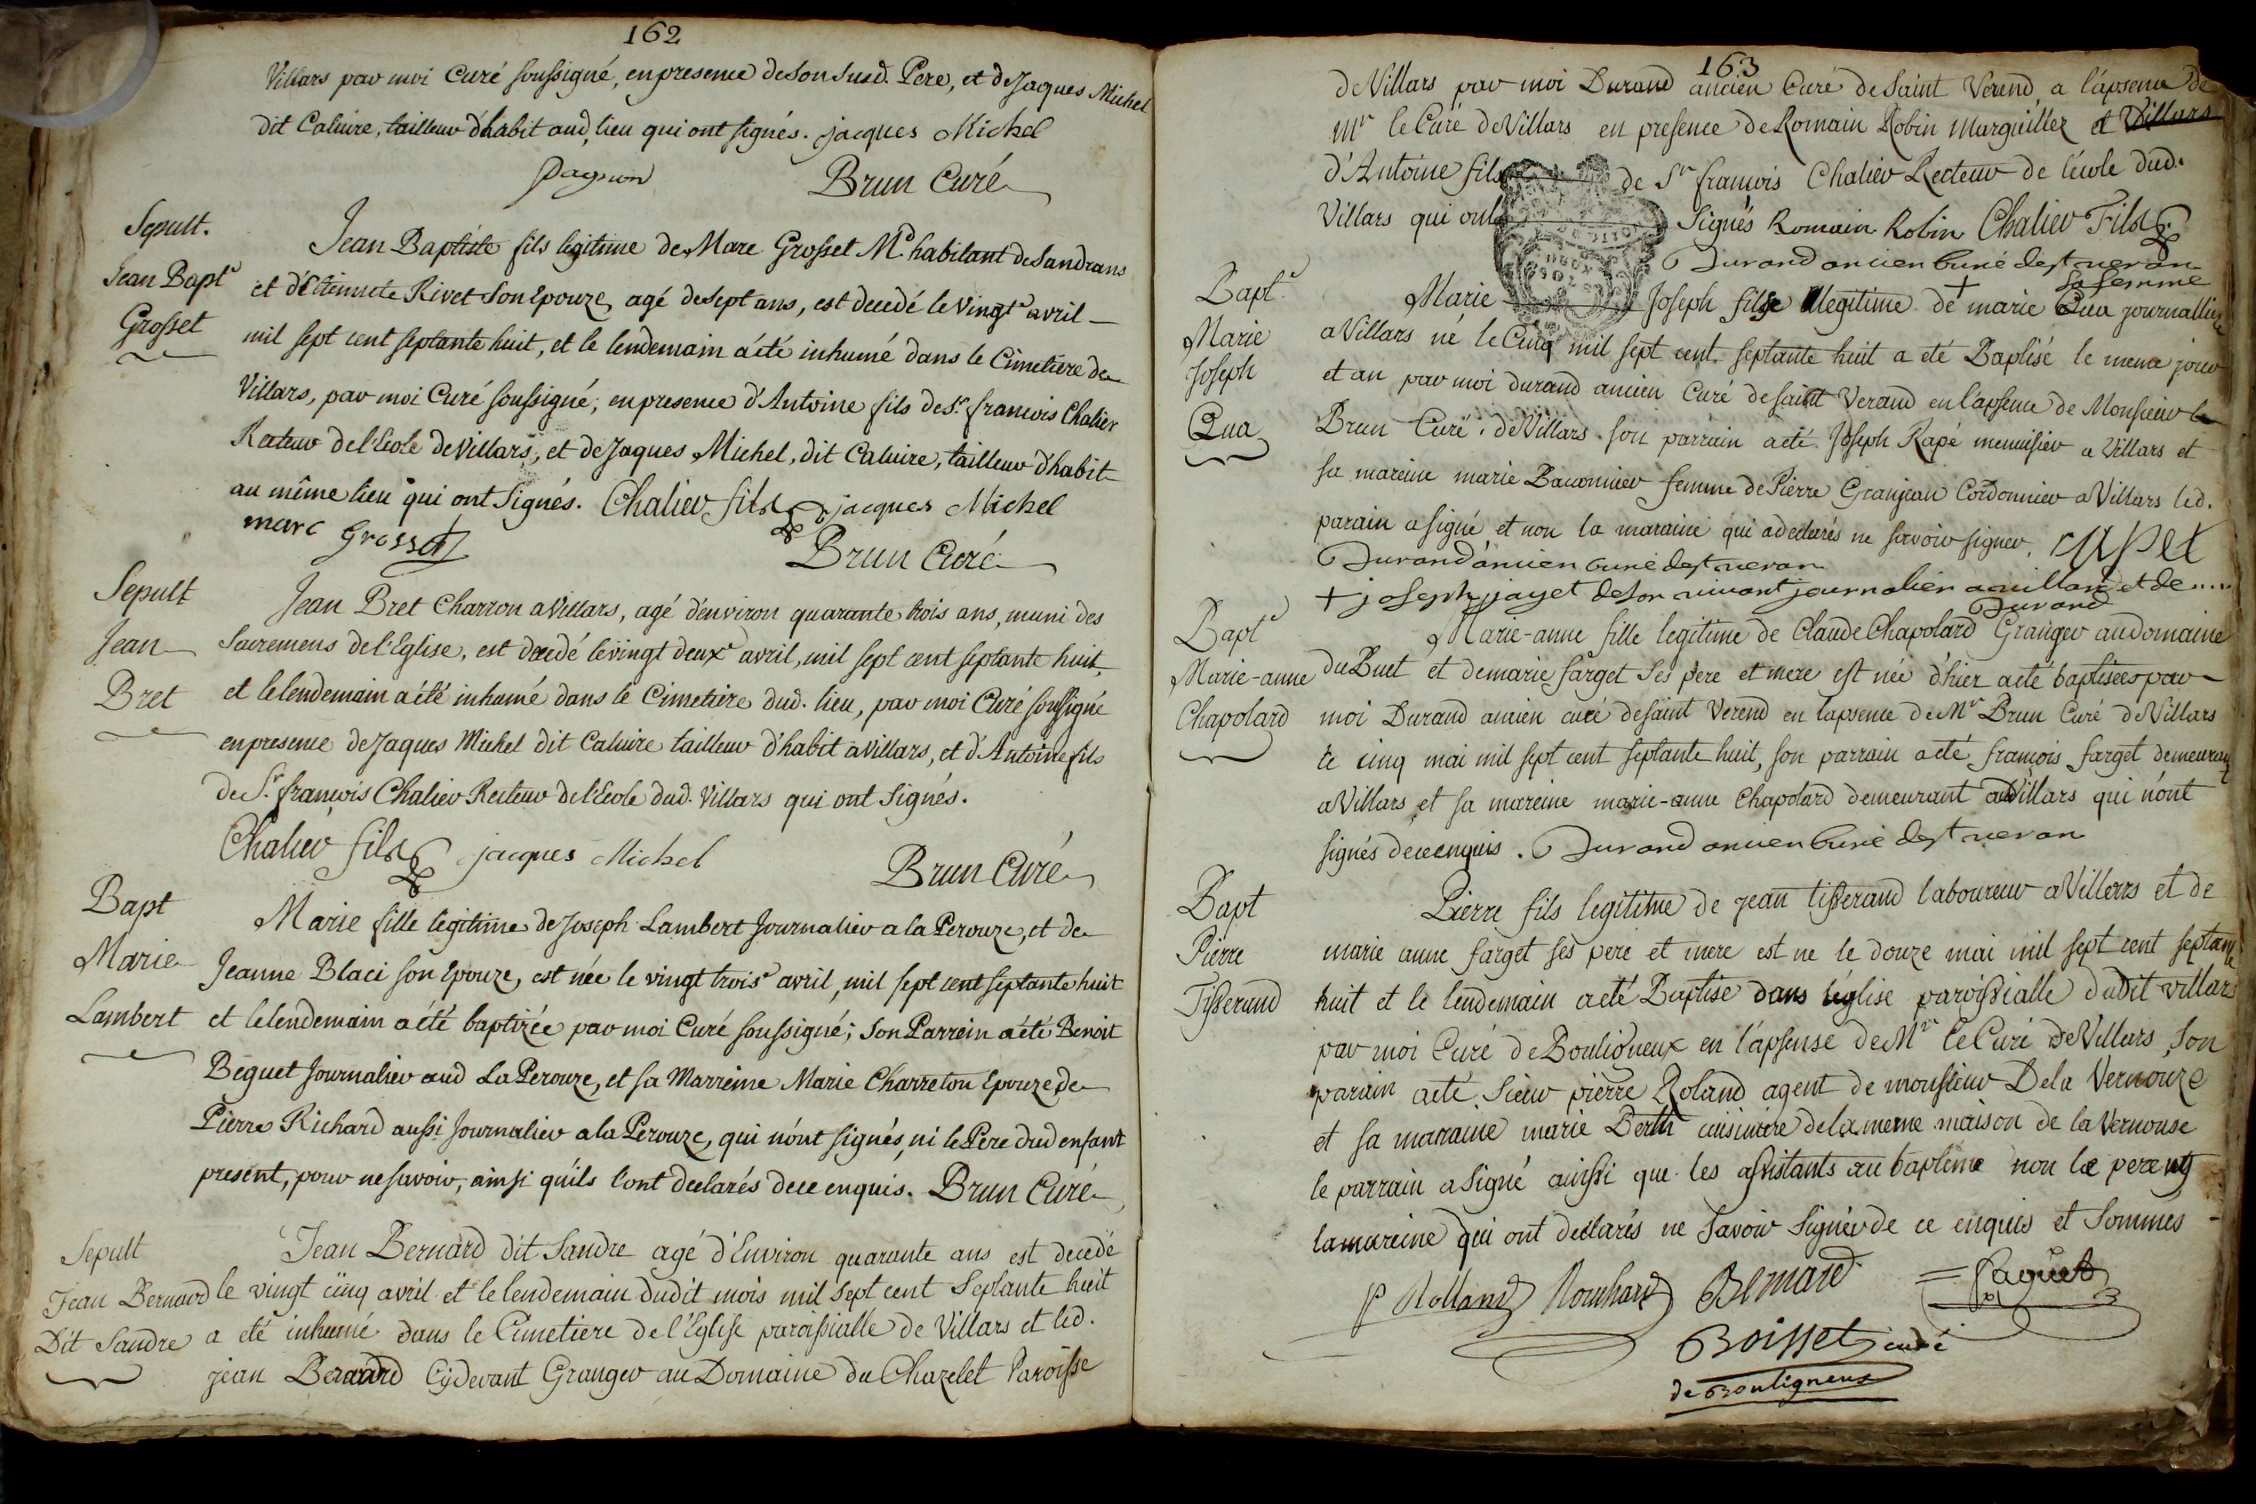 162
Villars par moi Curé soussigné, en presence de son susd. Pere, et de Jaques Michel
dit Caluire, tailleur d'habit aud, lieu qui ont signés. jacques Michel
Brun Curé
Sepult.
Jean Bapt.e
Grosset
Jean Baptiste fils legitime de Marc Grosset M.d habitant de Sandrans
et d'Etiennete Rivet Son Epouze, agé de sept ans, est decedé le vingt.e avril
mil sept cent septante huit, et le lendemain a été inhumé dans le Cimetiere de
Villars, par moi Curé soussigné, en presence d'Antoine fils de S.r francois Chalier
Recteur de l'Ecole de Villars, et de Jaques Michel, dit Caluire, tailleur d'habit
au même lieu qui ont Signés. Chalier fils jacques Michel
marc Grosset
Brun Curé
Sepult
Jean
Bret
Jean Bret Charron a Villars, agé d'environ quarante trois ans, muni des
Sacremens de l'Eglise, est decedé le vingt deux.e avril, mil sept cent septante huit,
et le lendemain a été inhumé dans le Cimetiere dud. lieu, par moi Curé soussigné
en presence de Jaques Michel dit Caluire tailleur d'habit a Villars, et d'Antoine fils
de S.r francois Chalier Recteur de l'Ecole dud. Villars qui ont Signés.
Chalier fils jacques Michel
Brun Curé
Bapt
Marie
Lambert
Marie fille legitime de Joseph Lambert Journalier a la Perouze, et de
Jeanne Blaci son Epouze, est née le vingt trois.e avril, mil sept cent septante huit
et le lendemain a été baptizée par moi Curé soussigné; Son Parrein a été Benoit
Beguet Journalier aud La Perouze, et sa Marreine Marie Charreton Epouze de
Pierre Richard aussi Journalier a la Perouze, qui n'ont signés, ni le Pere dud enfant
present, pour ne savoir, ainsi qu'ils l'ont declarés de ce enquis. Brun Curé
Sepult
Jean Bernard
Dit Sandre
Jean Bernard dit Sandre agé d'Environ quarante ans est decedé
le vingt cinq avril et le lendemain dudit mois mil sept cent Septante huit
a eté inhumé dans le Cimetiere de l'Eglise paroissialle de Villars et led.
jean Bernard Cydevant Granger au Domaine du Chazelet Paroisse
163
de Villars par moi Durand ancien Curé de Saint Verend a l'apsence de
M.r le Curé de Villars en presence de Romain Robin Marguillez et Villars
d'Antoine fils de S.r francois Chalier Recteur de l'école dud.
Villars qui ont Signés Romain Robin Chalier Fils
Durand ancien Curé de st veran
Bapt.e
Marie
Joseph
Qua
sa femme
Marie Joseph fils legitime de + marie Qua journallier
a Villars né le Cinq mil sept cent septante huit a eté Baptisé le meme jour
et an par moi durand ancien Curé de saint Verand en l'apsence de Monsieur le
Brun Curé de Villars. son parrain a eté Joseph Rapé menuisier a Villars et
sa mareine marie Baconnier femme de Pierre Granjean Cordonnier a Villars led.
parain a signé et non la maraine qui a declarés ne savoir signer. rapet
Durand ancien Curé de st veran
+ joseph jayet de son vivant journalier a villars et de.....
Durand
Bapt.e
Marie-anne
Chapolard
Marie-anne fille legitime de Claude Chapolard Granger au domaine
du Buet et de marie farget Ses pere et mere est née d'hier a eté baptisees par
moi Durand ancien curé de saint Verend en lapsence de M.r Brun Curé de Villars
le cinq mai mil sept cent septante huit, son parrain a eté francois farget demeurant
a Villars et sa mareine marie-anne Chapolard demeurant a Villars qui n'ont
signés de ce enquis. Durand ancien Curé de st veran
Bapt
Pierre
Tisserand
Pierre fils legitime de jean tisserand laboureur a Villars et de
marie anne farget ses pere et mere est ne le douze mai mil sept cent septante
huit et le lendemain a eté Baptisé dans l'église paroissialle dudit villars
par moi Curé de Bouligneux en l'apsense de M.r le Curé de Villars, son
parain a eté Sieur pierre Roland agent de monsieur De la Vernouze
et sa maraine marie Berth cuisiniere de la meme maison de la Vernouse
le parrain a signé aussi que les assistants au bapteme non le pere ny
la mareine qui ont declarés ne savoir signer de ce enquis et Sommés
P Rolland Bernard
Boisset curé
de Bouligneux